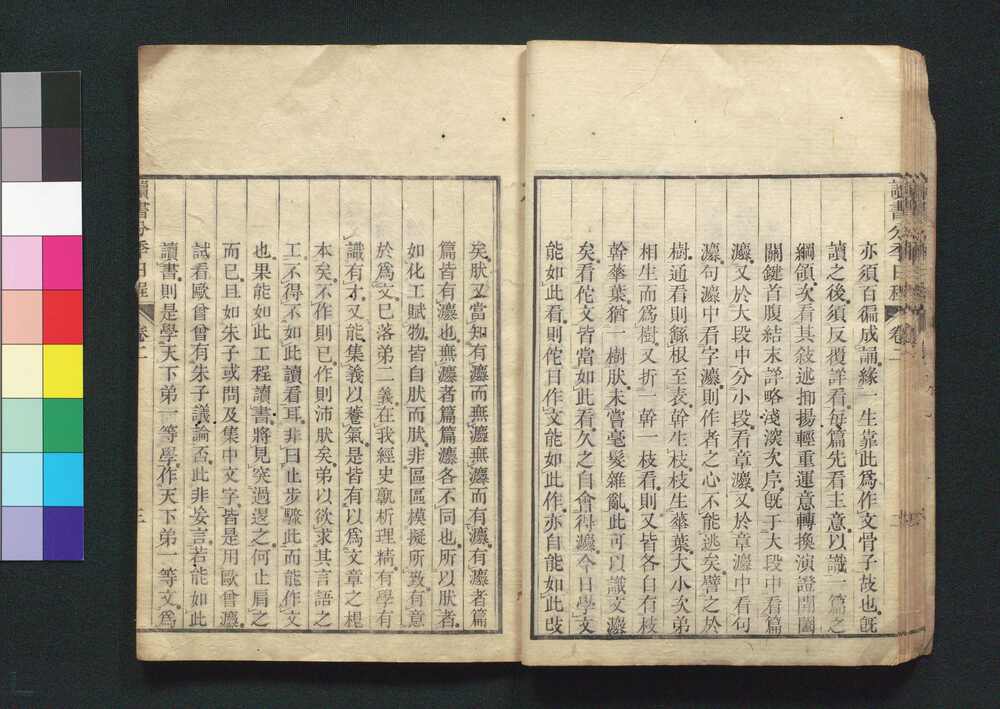 讀書分年日程 卷二
亦須百徧成誦緣一生靠此爲作文骨子故也旣
讀之後須反覆詳看每篇先看主意以識一篇之
綱領次看其敘述抑揚輕重運意轉換演證開闔
關鍵首腹結末詳略淺深次序旣于大段中看篇
灋又於大段中分小段看章灋又於章灋中看句
灋句灋中看字灋則作者之心不能逃矣譬之於
樹通看則繇根至表幹生枝枝生華葉大小次弟
相生而爲樹又折一幹一枝看則又皆各自有枝
幹華葉猶一樹肰未嘗毫髮雜亂此可以識文灋
矣看佗文皆當如此看久之自會得灋今日學文
能如此看則佗日作文能如此作亦自能如此攺
矣肰又當知有灋而無灋無灋而有灋有灋者篇
篇皆有灋也無灋者篇篇灋各不同也所以肰者
如化工賦物皆自肰而肰非區區模擬所致有意
於爲文已落弟二義在我經史孰析理精有學有
識有才又能集義以養氣是皆有以爲文章之根
本矣不作則已作則沛肰矣弟以欲求其言語之
工不得不如此讀看耳非曰止步驟此而能作文
也果能如此工程讀書將見突過退之何止肩之
而已且如朱子或問及集中文字皆是用歐曾灋
試看歐曾曾有朱子議論否此非妄言若能如此
讀書則是學天下弟一等學作天下弟一等文爲
讀書分年日程 卷二 三